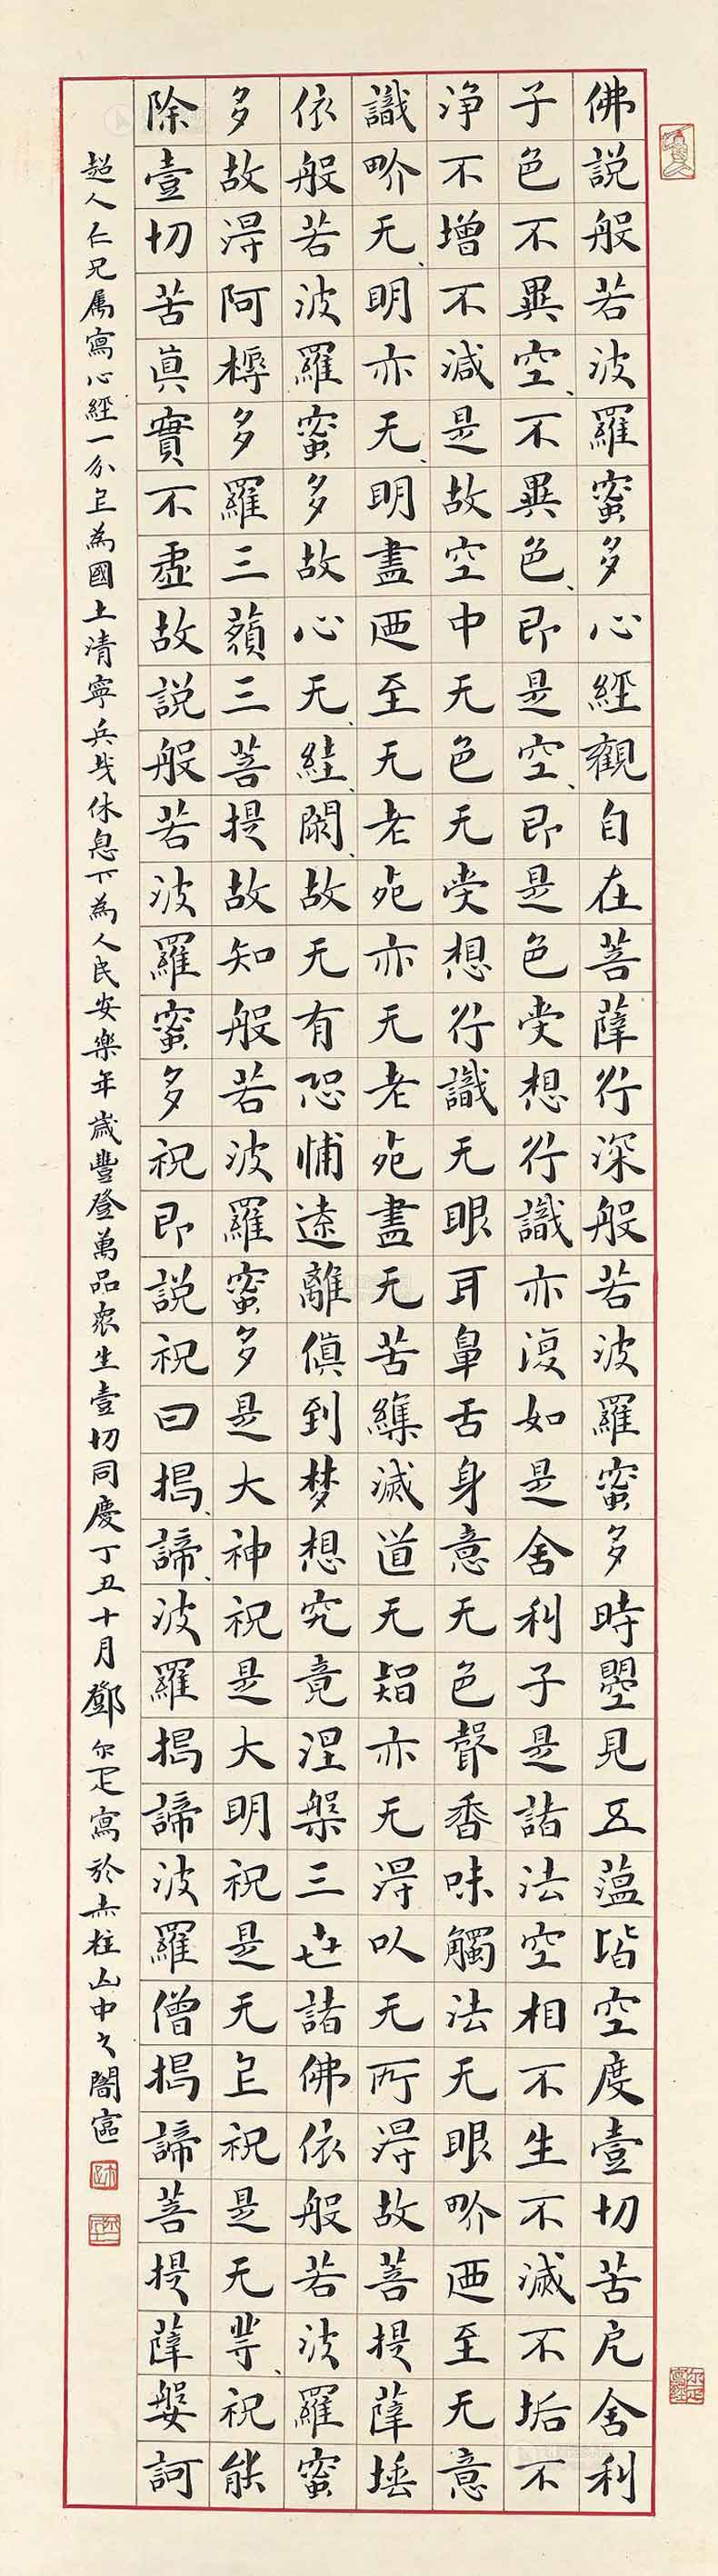 佛說般若波羅蜜多心經觀自在菩薩行深般若波羅蜜多時曌見五薀皆空度壹切苦戹舍利
子色不異空、不異色、即是空、即是色受想行識亦復如是舍利子是諸法空相不生不滅不垢不
净不增不減是故空中无色无受想行識无眼耳鼻舌身意无色聲香味觸法无眼界迺至无意
識界无、明亦无、明盡迺至无老死亦无老死盡无苦集滅道无智亦无得以无所得故菩提薩埵
依般若波羅蜜多故心无、絓閡、故无有恐怖遠離傎到梦想究竟涅槃三世諸佛依般若波羅蜜
多故得阿耨多羅三藐三菩提故知般若波羅蜜多是大神祝是大明祝是无上祝是无等、祝能
除壹切苦真實不虛故說般若波羅蜜多祝即說祝曰揭、諦、波羅揭諦波羅僧揭諦菩提薩婆訶
超人仁兄属寫心經一分上為國土清寧兵戈休息下為人民安樂年歲豐登萬品衆生壹切同慶丁丑十月鄧尔疋寫於赤柱山中之闇